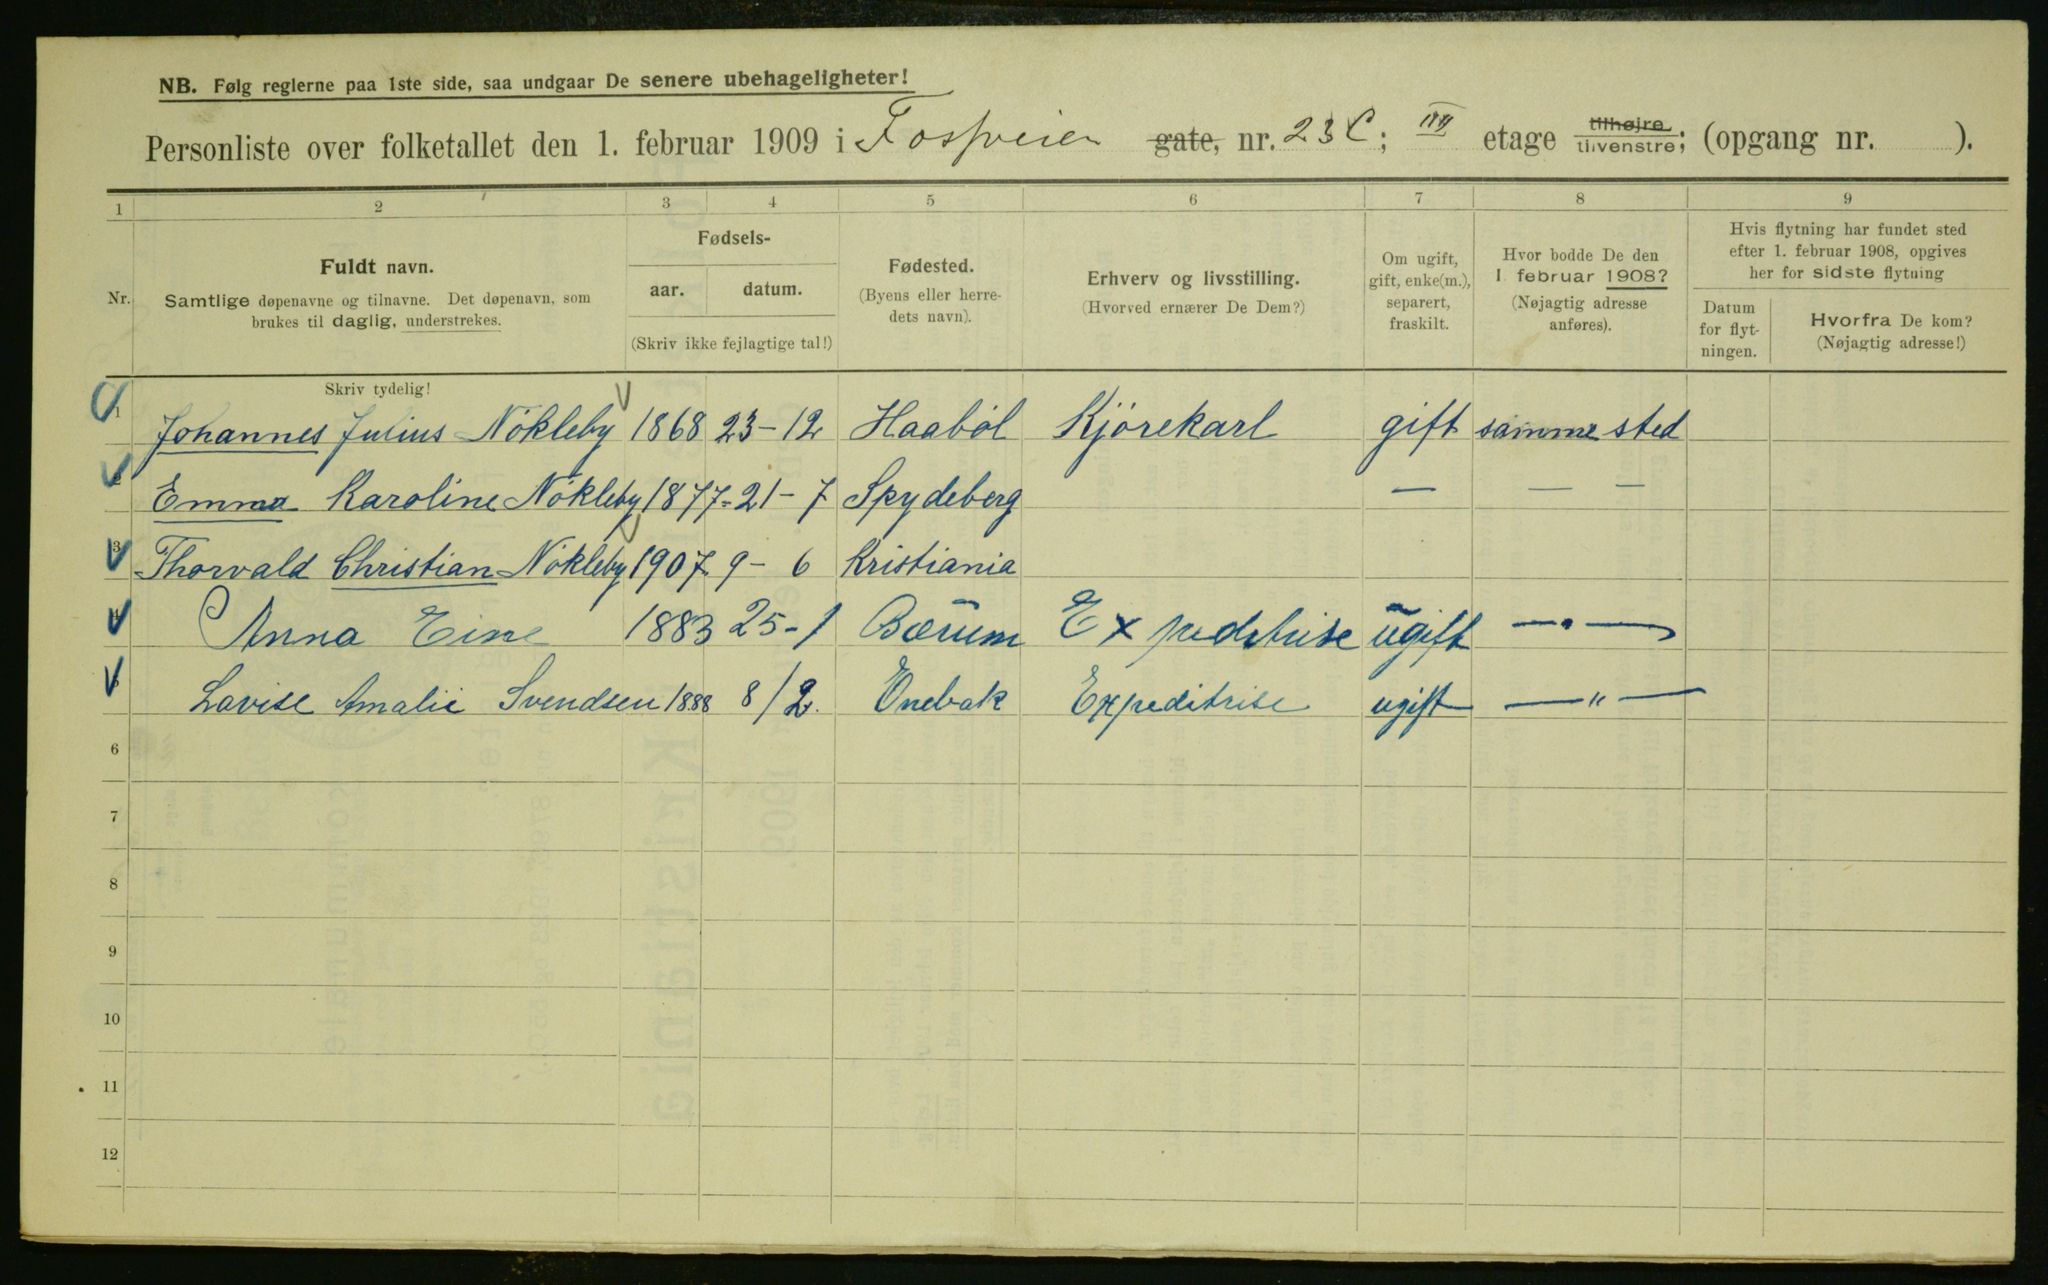 NB. Følg reglerne paa 1ste side, saa undgaar De senere ubehageligheter!
Personliste over folketallet den 1. februar 1909 i Fossveien gate, nr. 23 C; IIII etage tilhøjre tilvenstre; (opgang nr. ).
1 2 3 4 5 6 7 8 9
Nr.
Fuldt navn.
Samtlige døpenavne og tilnavne. Det døpenavn, som
brukes til daglig, understrekes.
Fødsels-
aar. datum.
(Skriv ikke fejlagtige tal!)
Fødested.
(Byens eller herre-
dets navn).
Erhverv og livsstilling.
(Hvorved ernærer De Dem?)
Om ugift,
gift, enke(m.),
separert,
fraskilt.
Hvor bodde De den
1. februar 1908?
(Nøjagtig adresse
anføres).
Hvis flytning har fundet sted
efter 1. februar 1908, opgives
her for sidste flytning
Datum
for flyt-
ningen.
Hvorfra De kom?
(Nøjagtig adresse!)
Skriv tydelig!
1 Johannes Julius Nökleby 1868 23-12 Haaböl Kjörekarl gift samme sted
2 Emma Karoline Nökleby 1877 - 21-7 Spydeberg — — —
3 Thorvald Christian Nökleby 1907 9-6 Kristiania
4 Anna Eine 1883 25-1 Bærum Expeditrise ugift — . —
Lovise Amalie Svendsen 1888 8/2. Enebak Expeditrise ugift — " —
6
7
8
9
10
11
12